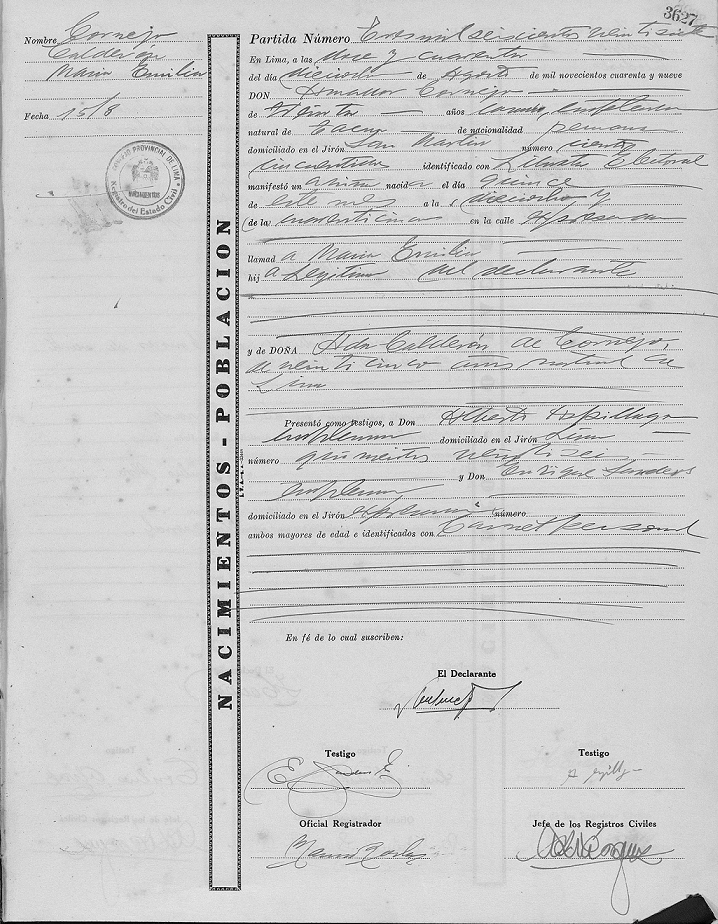 3627
Nombre Cornejo
Calderón
Maria Emilia
Fecha 15/8
CONCEJO PROVINCIAL DE LIMA
NACIMIENTOS
Registro del Estado Civil
NACIMIENTOS - POBLACION
Partida Número Tres mil seiscientos veintisiete
En Lima, a las doce y cuarenta
del día dieciocho de Agosto de mil novecientos cuarenta y nueve
DON Amador Cornejo
de treinta años casado, empleado
natural de Tacna de nacionalidad peruana
domiciliado en el Jirón San Martín número ciento
cincuentidos identificado con Libreta Electoral
manifestó un a niña nacida el día quince
de este mes a la s dieciocho y
(de la cuarenticinco en la calle
llamad a Maria Emilia
hij a legítima del declarante
y de DOÑA Ada Calderón de Cornejo,
de veinticinco años natural de
Lima
Presentó como testigos, a Don Alberto Aspillaga
empleado domiciliado en el Jirón Lima
número quinientos veintiseis
y Don Enrique Sanders
empleado
domiciliado en el Jirón número
ambos mayores de edad e identificados con Carnet Personal
En fé de lo cual suscriben:
El Declarante
Testigo
Testigo
Oficial Registrador
Jefe de los Registros Civiles